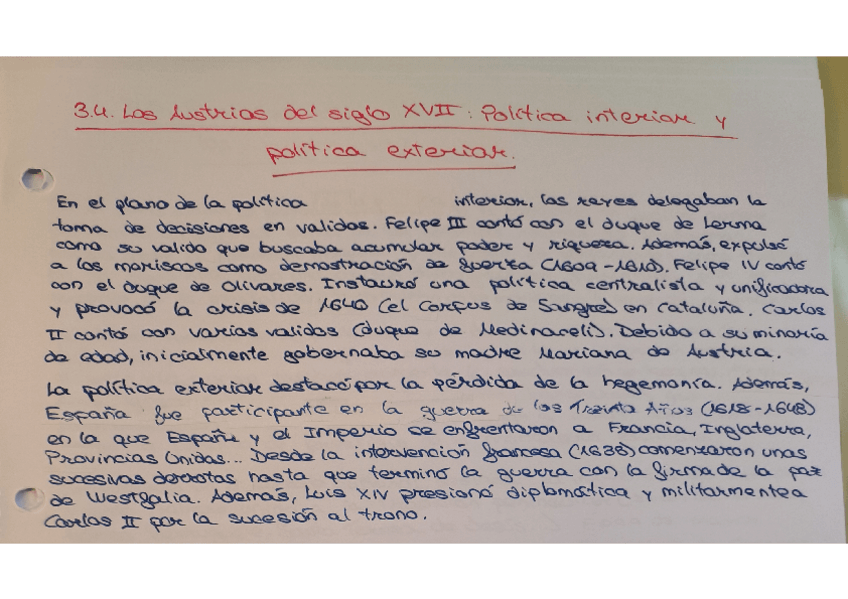 3.4. Los Austrias del siglo XVII: Política interior y
política exterior.
En el plano de la política interior, los reyes delegaban la
toma de decisiones en validos. Felipe III contó con el duque de Lerma
como su valido que buscaba acumular poder y riqueza. Además, expulsó
a los moriscos como demostración de fuerza (1609-1610). Felipe IV contó
con el duque de Olivares. Instauró una política centralista y unificadora
y provocó la crisis de 1640 (el Corpus de Sangre) en Cataluña. Carlos
II contó con varios validos (duque de Medinaceli). Debido a su minoría
de edad, inicialmente gobernaba su madre Mariana de Austria.
La política exterior destacó por la pérdida de la hegemonía. Además,
España fue participante en la guerra de los Treinta Años (1618-1648)
en la que España y el Imperio se enfrentaron a Francia, Inglaterra,
Provincias Unidas... Desde la intervención francesa (1636) comenzaron unas
sucesivas derrotas hasta que terminó la guerra con la firma de la paz
de Westfalia. Además, Luis XIV presionó diplomática y militarmente a
Carlos II por la sucesión al trono.